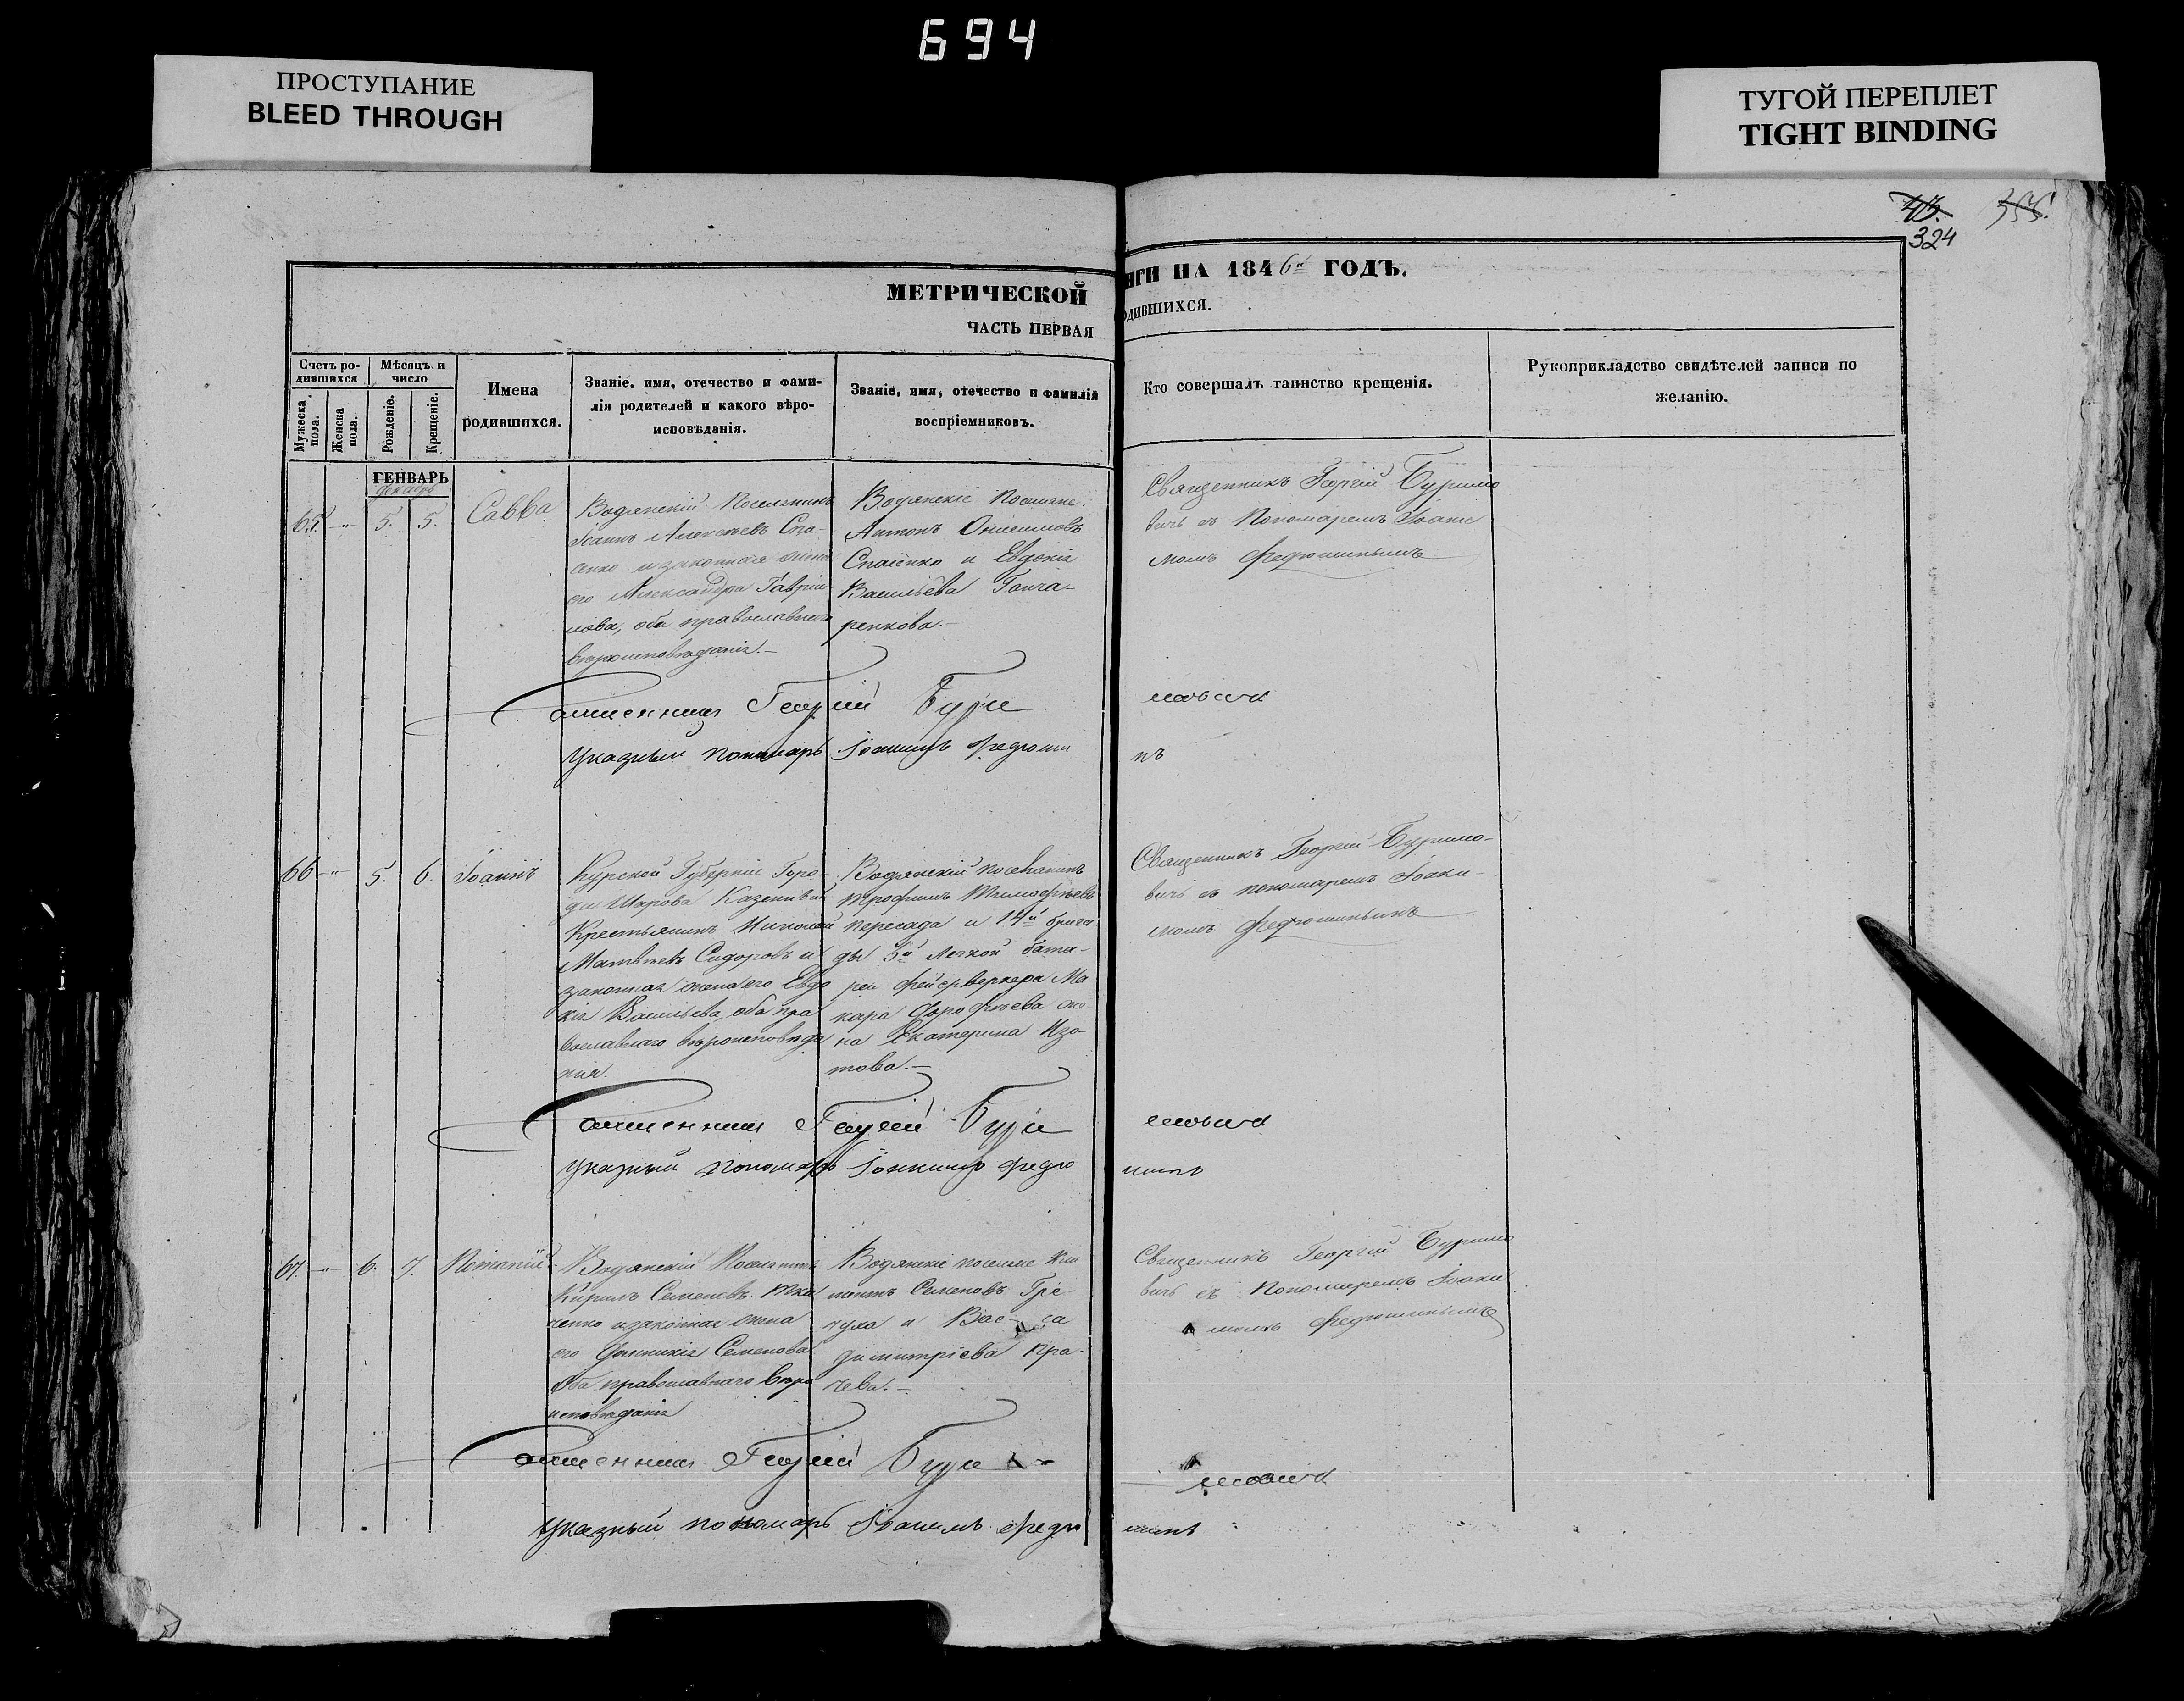 694
ПРОСТУПАНИЕ
BLEED THROUGH
ТУГОЙ ПЕРЕПЛЕТ
TIGHT BINDING
324
МЕТРИЧЕСКОЙ
ИГИ НА 1846й ГОДЪ.
ЧАСТЬ ПЕРВАЯ
ОДИВШИХСЯ.
Счетъ ро-
дившихся
Мѣсяцъ и
число
Мужеска
пола.
Женска
пола.
Рожденіе.
Крещеніе.
Имена
родившихся.
Званіе, имя, отечество и фами-
лія родителей и какого вѣро-
исповѣданія.
Званіе, имя, отечество и фамилія
воспріемниковъ.
Кто совершалъ таинство крещенія.
Рукоприкладство свидѣтелей записи по
желанію.
ГЕНВАРЬ
Декабрь
65. 5. 5. Савва
Водянскій Поселянинъ
Іоаннъ Алексѣевъ Спа-
сенко и законная жена
его Александра Гаврии
лова, оба православнаго
вѣроисповѣданія.
Водянскіе Поселяне
Антонъ Онисимовъ
Спасенко и Евдокія
Васильева Гонча-
ренкова.
Священникъ Георгій Буримо
вичь съ Пономаремъ Іоаки
момъ Федюшинымъ
Священникъ Георгій Буримовичь
Указный пономарь Іоакимъ Федюшинъ
66 5. 6. Іоаннъ
Курской Губерніи Горо-
да Казенный
Крестьянинъ Николай
Матвѣевъ Сидоровъ и
законная жена его Евдо
кія Васильева, оба пра
вославнаго вѣроисповѣда
нія.
Водянскій поселянинъ
Трофимъ Тимофѣевъ
пересада и 14й брига
ды 5й Легкой бата-
реи фейерверкера Ма
кара Дорофѣева же
на Екатерина Изо-
това.
Священникъ Георгій Буримо-
вичь съ пономаремъ Іоаки-
момъ Федюшинымъ
Священникъ Георгій Буримовичь
Указный пономарь Іоакимъ Федюшинъ
67. 6. 7.
Водянскій Поселянинъ
Кирилъ Семеновъ Тка
ченко и законная жена
его Семенова
Оба православнаго вѣро
исповѣданія
Водянскіе поселяне Кли
ментъ Семеновъ Гре-
чуха и
Димитріева Кра-
чева.
Священникъ Георгій Буримо
вичь съ Пономаремъ Іоаки
момъ Федюшинымъ
Священникъ Георгій Буримовичь
Указный пономарь Іоакимъ Федюшинъ